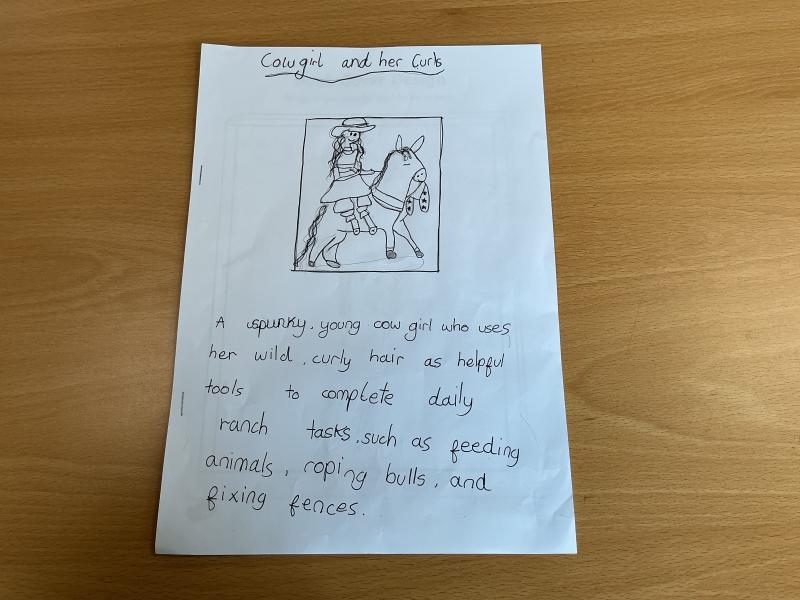 Cowgirl and her Curls
A spunky, young cow girl who uses
her wild, curly hair as helpful
tools to complete daily
ranch tasks, such as feeding
animals, roping bulls, and
fixing fences.